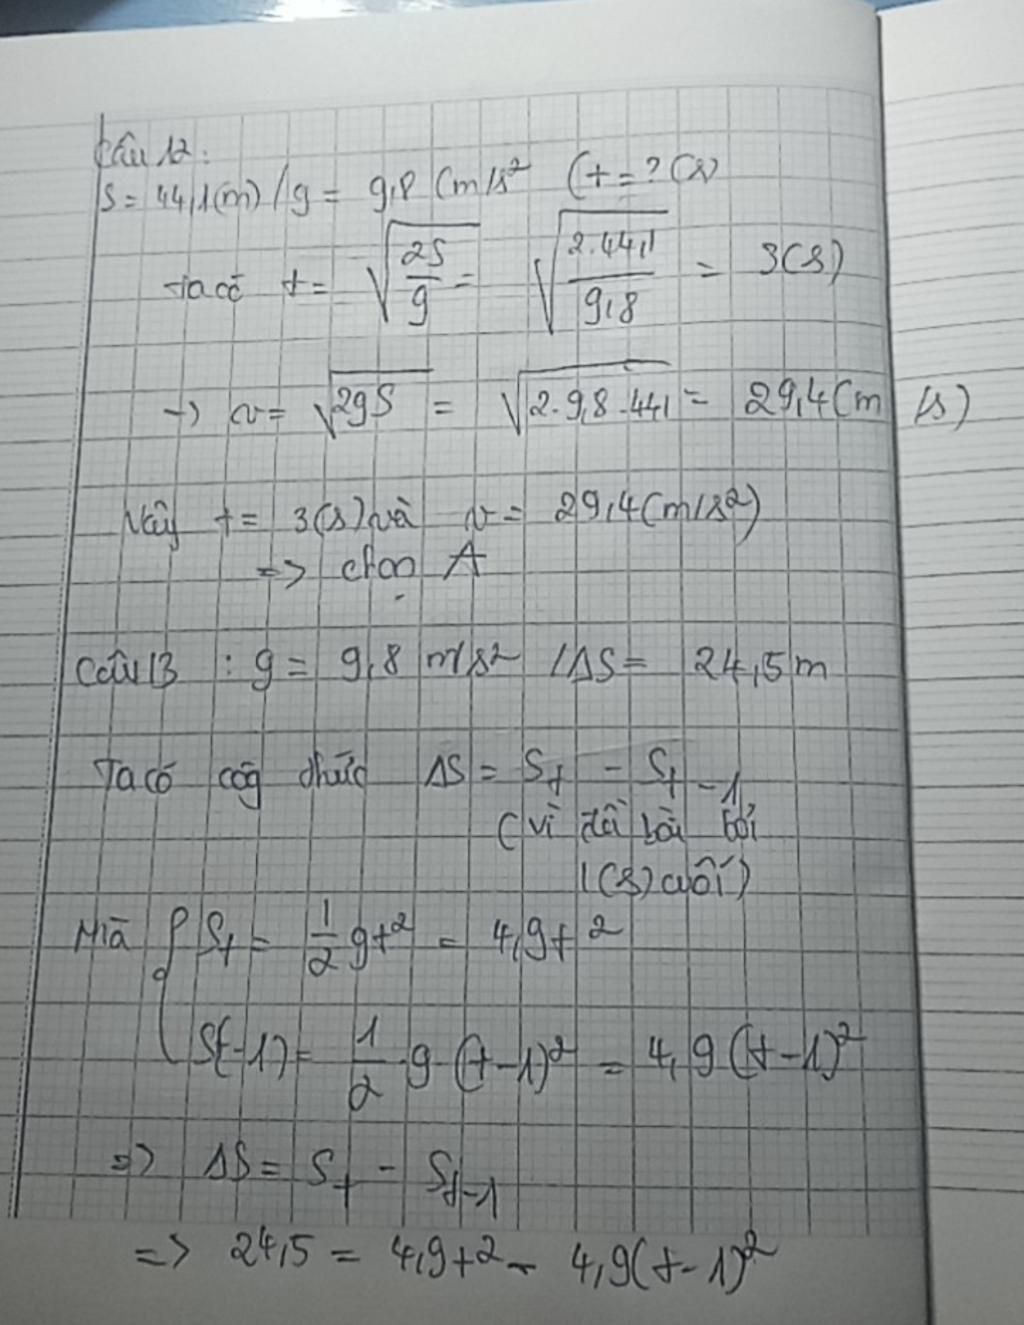 Câu 12:
S = 44,1(m) / g = 9,8 (m/s² (t = ? (s)
Ta có t = √(2S/g) = √(2.44,1/9,8) = 3(s)
→ v = √2gS = √2.9,8.44,1 = 29,4(m/s)
Vậy t = 3(s) và v = 29,4(m/s²)
=> chọn A
Câu 13 : g = 9,8 m/s² / ΔS = 24,5 m
Ta có côg thức ΔS = St - St-1
(vì đề bài bởi
1(s) cuối)
Mà { St = 1/2 gt² = 4,9t²
S(-1) = 1/2 .g (t-1)² = 4,9(t-1)²
=> ΔS = St - St-1
=> 24,5 = 4,9t² - 4,9(t-1)²